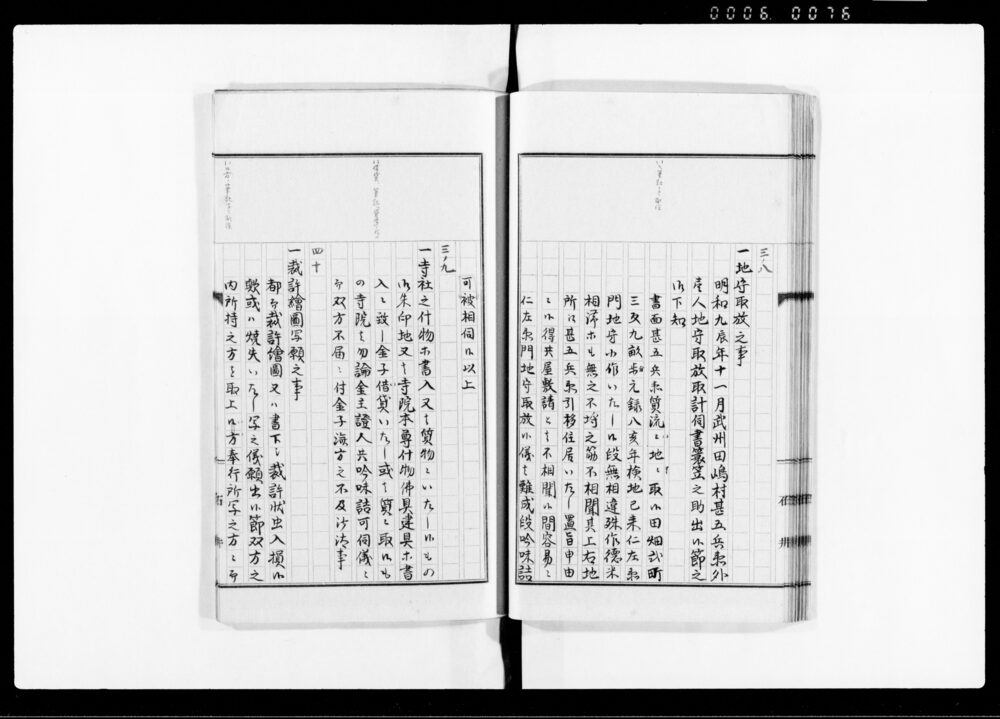 0006 0076
三ノ八
一地守取放之事
明和九辰年十一月武州田嶋村甚五兵衛外
壱人地守取放取計伺書簑笠之助出候節之
御下知
書面甚五兵衛質流ニ地ニ取候田畑弐町
三反九畝歩元録八亥年検地已来仁左衛
門地守小作いたし候段無相違殊作徳米
相滞候も無之不埒之筋不相聞其上右地
所江甚五兵衛引移住居いたし置旨申由
ニ候得共屋敷請とも不相聞候間容易ニ
仁左衛門地守取放候儀も難成段吟味詰
可被相伺候以上
三ノ九
一寺社之什物ホ書入又は質物ニいたし候もの
御朱印地又は寺院本尊什物佛具建具ホ書
入ニ致し金子借貸いたし或は質ニ取候もの
の寺院は勿論金主證人共吟味詰可伺儀ニ
而双方不届ニ付金子済方之不及沙汰事
四十
一裁許繪圖写願之事
都而裁許繪圖又ハ書下ニ裁許状虫入損候
歟或ハ焼失いたし写之儀願出候節双方之
内所持之方を取上候方奉行所写之方ニ而
石井